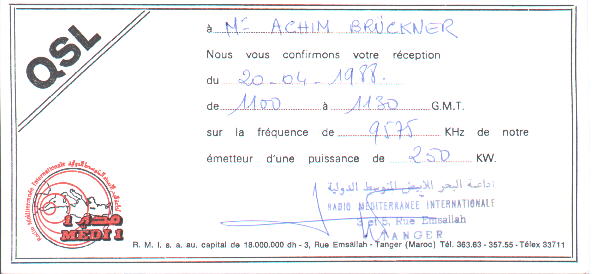 QSL
à Mr ACHIM BRÜCKNER
Nous vous confirmons votre réception
du 20-04-1988.
de 1100 à 1130 G.M.T.
sur la fréquence de 9575 KHz de notre
émetteur d'une puissance de 250 KW.
إذاعة البحر الأبيض المتوسط الدولية
RADIO MEDITERRANEE INTERNATIONALE
3 et 5, Rue Emsallah
TANGER
Radio Méditerranée Internationale
MEDI 1
R. M. I. s. a. au. capital de 18.000.000 dh - 3, Rue Emsallah - Tanger (Maroc) Tél. 363.63 - 357.55 - Télex 33711